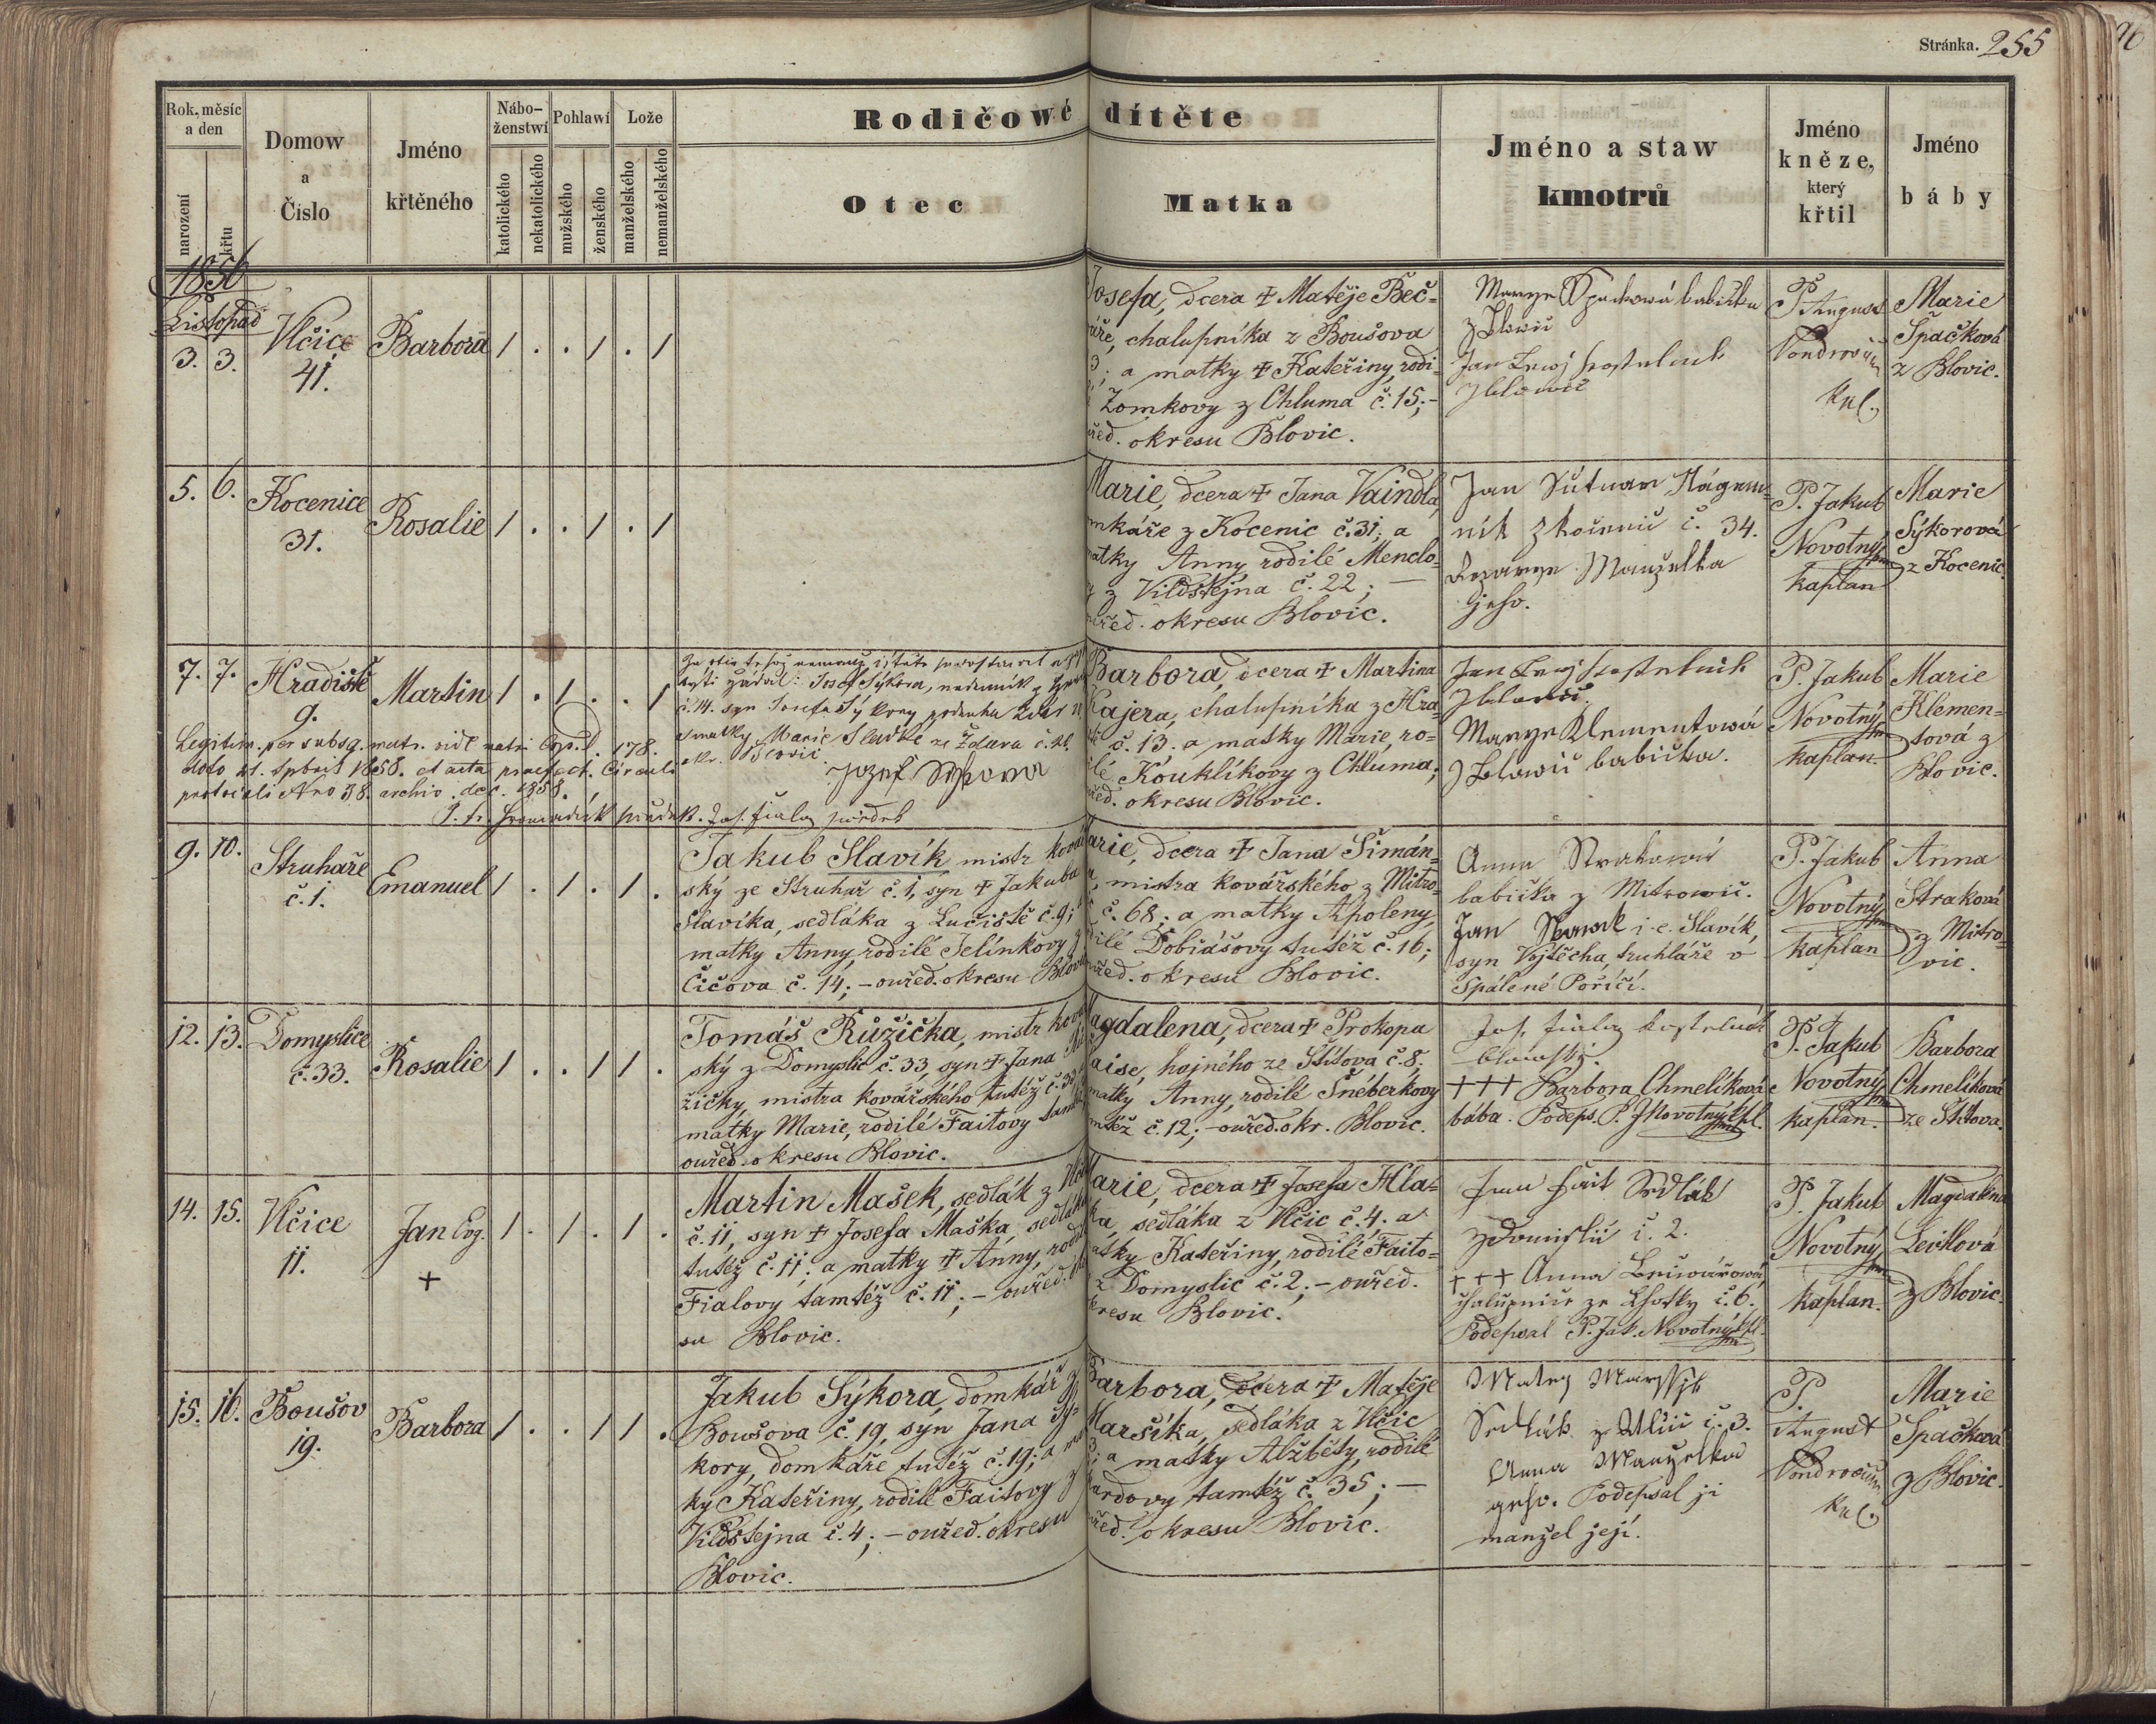 Stránka. 255
Rok, měsíc
a den
narození
křtu
Domow
a
Číslo
Jméno
křtěného
Nábo-
ženstwí
katolického
nekatolického
Pohlawí
mužského
ženského
Lože
manželského
nemanželského
Rodičowé dítěte
Otec
Matka
Jméno a staw
kmotrů
Jméno
kněze,
který
křtil
Jméno
báby
1856
Listopad
3. 3.
Vlčice
41.
Barbora
1 . . 1 . 1
Josefa, dcera + Matěje Beč=
chalupníka z Boušova
a matky + Kateřiny, rodi-
Zomkovy z Chluma č. 15;-
okresu Blovic.
babička
Jan
P. August
Kpl.
Marie
Špačková
z Blovic.
5. 6.
Kocenice
31.
Rosalie
1 . . 1 . 1
Marie, dcera + Jana Vaindla,
z Kocenic č. 31; a
matky Anny rodilé Menclo-
z Vildštejna č. 22; —
ouřed. okresu Blovic.
Jan
ník č. 34.
Manželka
jeho.
P. Jakub
Novotný
kaplan
Marie
Sýkorová
z Kocenic.
7. 7.
Hradiště
9.
Martin
1 . 1 . . 1
Josef Sýkora,
č. 14. syn Josefa Sýkory
matky Marie ze Ždára
Blovic
Legitim. per subsq. matr. 178.
1858.
1858.
Barbora, dcera + Martina
Kajera, chalupníka z Hra-
č. 13. a matky Marie, ro-
Kouklíkovy z Chluma;
okresu Blovic.
Jan
Klementowá
babička.
P. Jakub
Novotný
kaplan
Marie
Klemen-
tová z
Blovic.
9. 10.
Struhaře
č. 1.
Emanuel
1 . 1 . 1 .
Jakub Slavík mistr ková
ský ze Struhař č. 1, syn + Jakuba
Slavíka, sedláka z Lučiště č. 9;
matky Anny, rodilé Jelínkovy z
Čičova č. 14; – ouřed. okresu Blovic
Marie, dcera + Jana Šimán-
mistra kovářského z Mitro-
č. 68; a matky Apoleny,
Dobiášovy tutéž č. 16;
ouřed. okresu Blovic.
Anna
babička z Mitrowic.
Jan i. e. Slavík,
syn Vojtěcha, truhláře v
Spálené Poříčí.
P. Jakub
Novotný
kaplan
Anna
Straková
z Mitro-
vic.
12. 13.
Domyslice
č. 33.
Rosalie
1 . . 1 1 .
Tomáš Růžička, mistr ková
ský z Domyslic č. 33, syn + Jana Rů
žičky, mistra kovářského tutéž č. 33
matky Marie, rodilé Faitovy tamtéž
ouřed. okresu Blovic.
Magdalena, dcera + Prokopa
hajného ze Štítova č. 8,
matky Anny, rodilé Šnéberkovy
č. 12; – ouřed. okr. Blovic.
+++ Barbora Chmelíková
bába. Podeps. P. J Novotný kpl.
P. Jakub
Novotný
kaplan.
Barbora
Chmelíková
ze Štítova.
14. 15.
Vlčice
11.
Jan Evg.
+
1 . 1 . 1 .
Martin Mašek, sedlák z Vlč
č. 11, syn + Josefa Maška, sedláka
tutéž č. 11; a matky + Anny, rodil
Fialovy tamtéž č. 11; – ouřed. okre
su Blovic.
Marie, dcera + Josefa Hla-
sedláka z Vlčic č. 4; a
matky Kateřiny, rodilé Faito-
z Domyslic č. 2; – ouřed.
okresu Blovic.
Fait Sedlák
č. 2.
+++ Anna
ze Lhotky č. 6.
Podepsal P. Jak. Novotný kpl.
P. Jakub
Novotný
kaplan.
Magdalena
Levíková
z Blovic.
15. 16.
Boušov
19.
Barbora
1 . . 1 1 .
Jakub Sýkora, domkář z
Boušova č. 19, syn Jana Sý-
kory, domkáře tutéž č. 19; a mat
ky Kateřiny, rodilé Faitovy z
Vildštejna č. 4; – ouřed. okresu
Blovic.
Barbora, dcera + Matěje
Maršíka, sedláka z Vlčic
3; a matky Alžběty, rodilé
tamtéž č. 35; —
ouřed. okresu Blovic.
Sedlák z Vlčic č. 3.
Anna Manželka
geho. Podepsal ji
manžel její.
P.
August
Kpl.
Marie
Špačková
z Blovic.